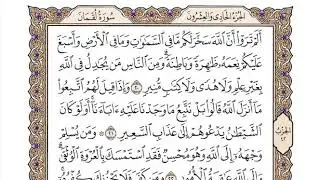 سُورَةُ لُقْمَانَ
الجُزْءُ الحَادِى وَالعِشْرُونَ
أَلَمْ تَرَوْا۟ أَنَّ ٱللَّهَ سَخَّرَ لَكُم مَّا فِى ٱلسَّمَـٰوَٰتِ وَمَا فِى ٱلْأَرْضِ وَأَسْبَغَ
عَلَيْكُمْ نِعَمَهُۥ ظَـٰهِرَةً وَبَاطِنَةً ۗ وَمِنَ ٱلنَّاسِ مَن يُجَـٰدِلُ فِى ٱللَّهِ
بِغَيْرِ عِلْمٍ وَلَا هُدًى وَلَا كِتَـٰبٍ مُّنِيرٍ ٢٠ وَإِذَا قِيلَ لَهُمُ ٱتَّبِعُوا۟
مَآ أَنزَلَ ٱللَّهُ قَالُوا۟ بَلْ نَتَّبِعُ مَا وَجَدْنَا عَلَيْهِ ءَابَآءَنَآ ۚ أَوَلَوْ كَانَ
ٱلشَّيْطَـٰنُ يَدْعُوهُمْ إِلَىٰ عَذَابِ ٱلسَّعِيرِ ٢١ ۞ وَمَن يُسْلِمْ
وَجْهَهُۥٓ إِلَى ٱللَّهِ وَهُوَ مُحْسِنٌ فَقَدِ ٱسْتَمْسَكَ بِٱلْعُرْوَةِ ٱلْوُثْقَىٰ ۗ